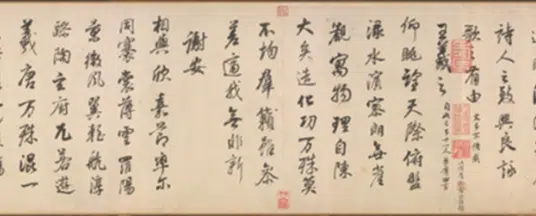 詩人之致興良詠
歌有由
王羲之
仰眺望天際俯盤
淥水濱寥朗無崖
觀寓物理自陳
大矣造化功萬殊莫
不均羣籟雖參
差適我無非新
謝安
相與欣嘉節率爾
同褰裳薄雲羅陽
景微風翼輕航淳
醪陶玄府兀若遊
羲唐萬殊混一